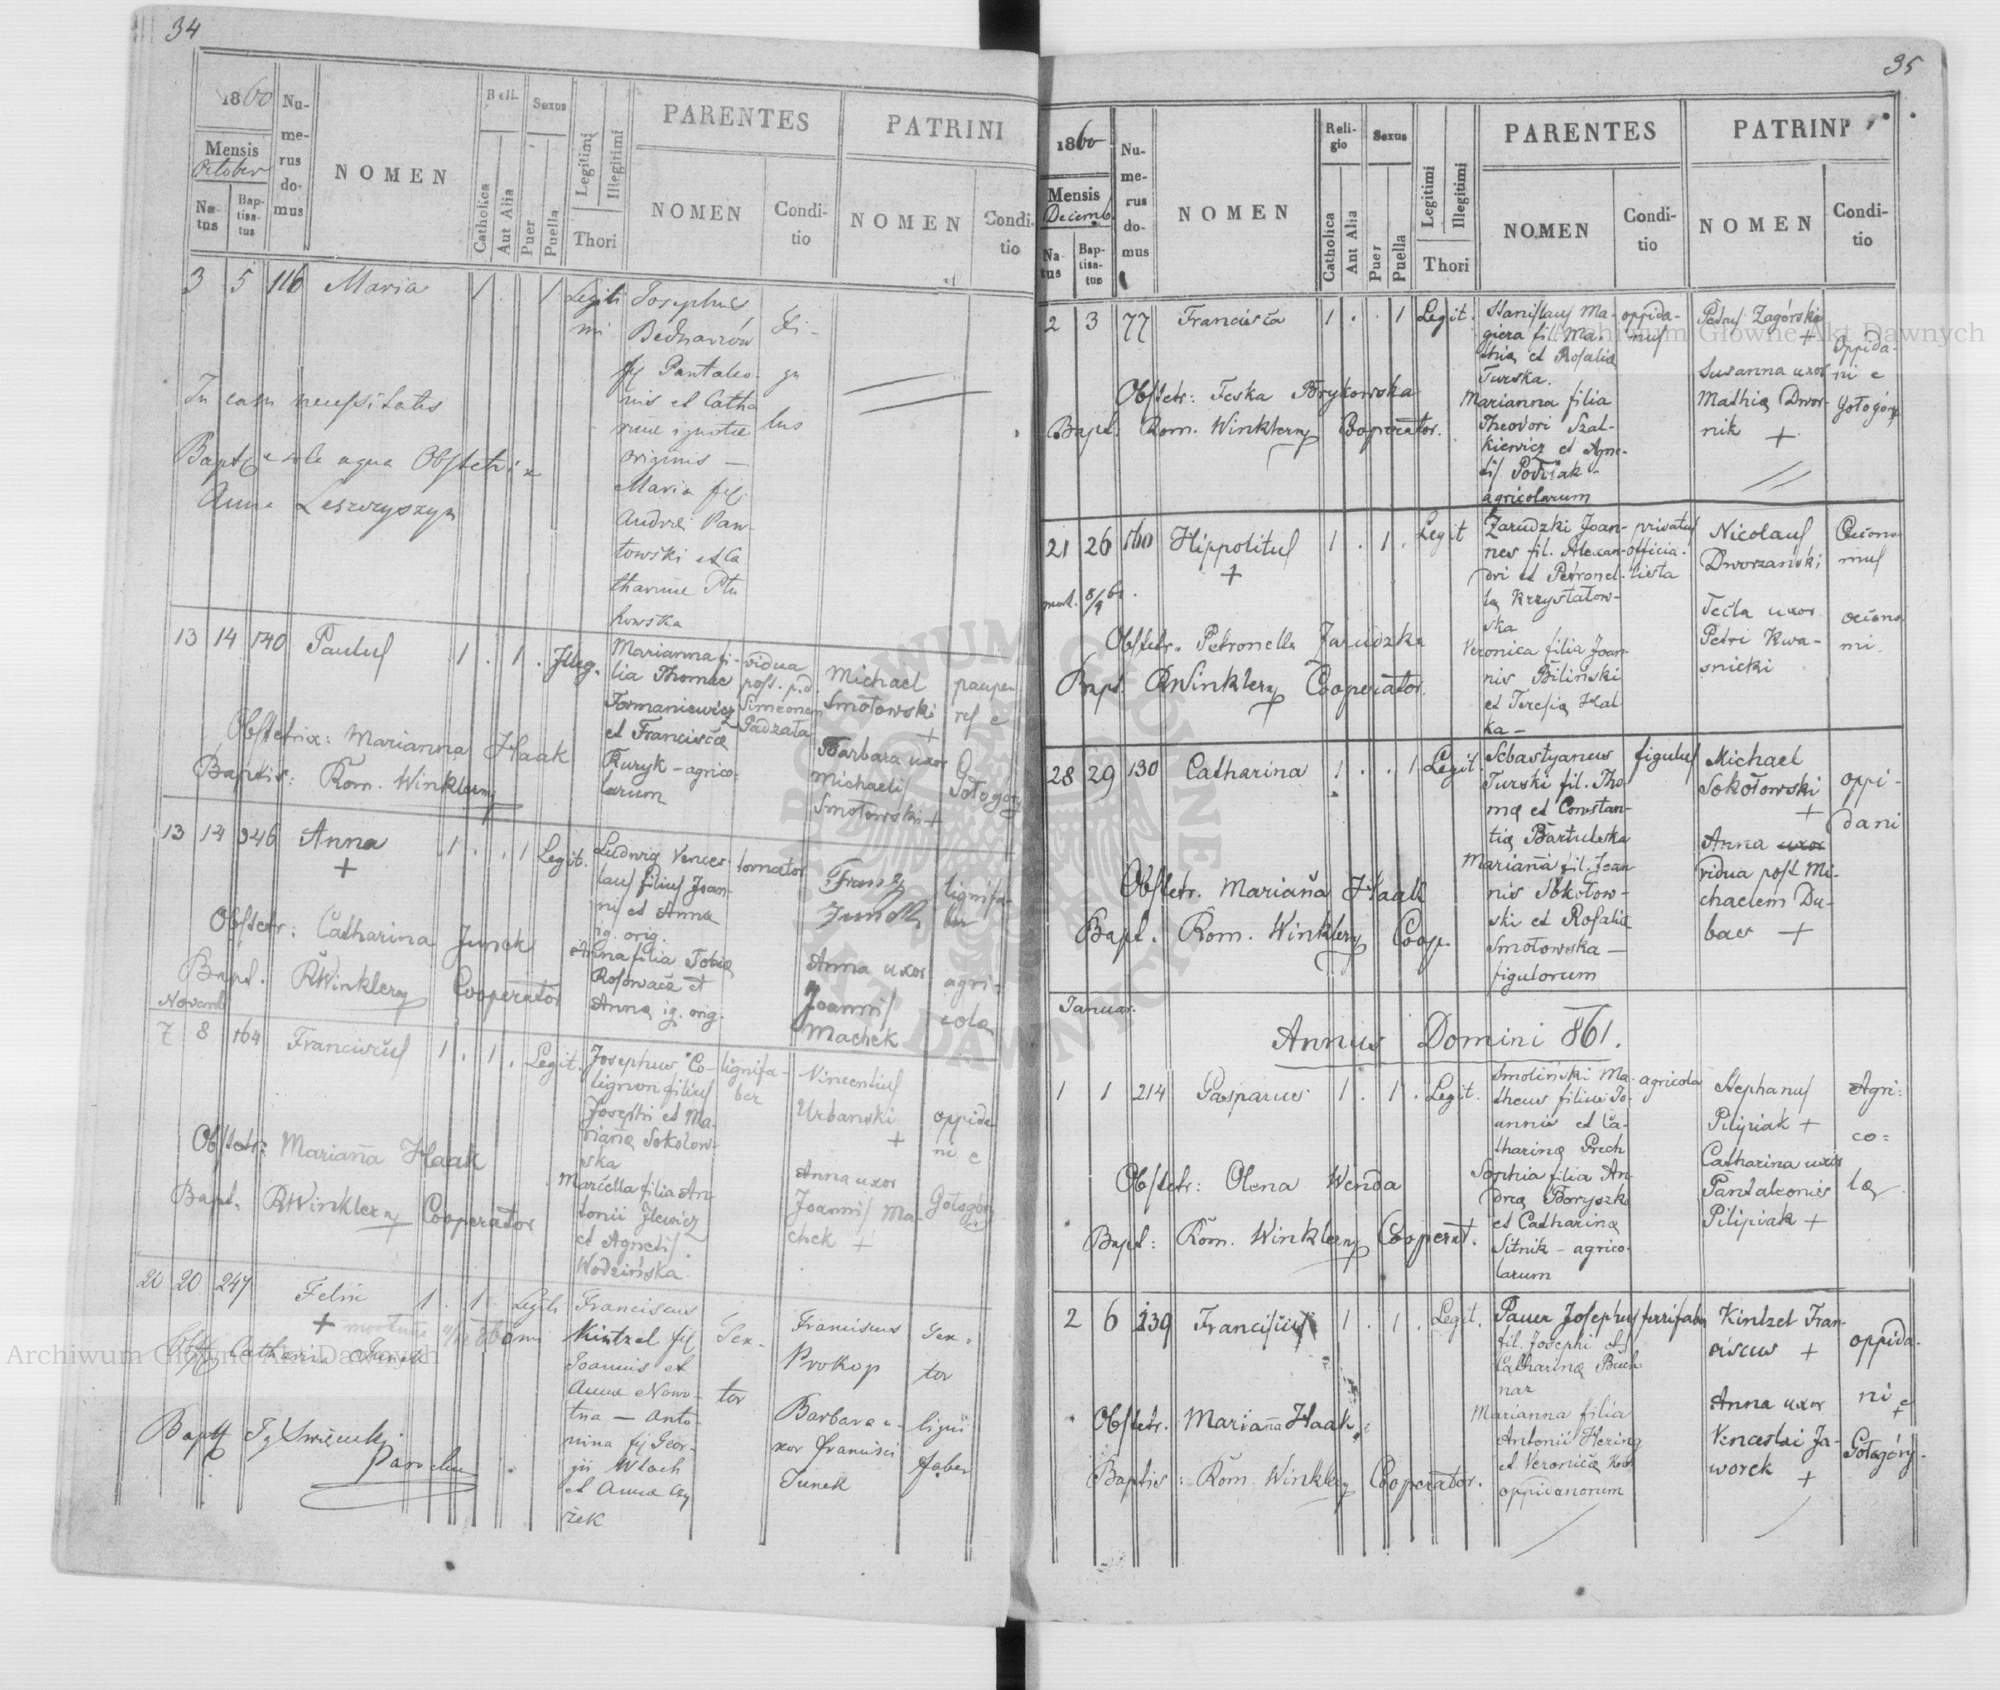 34
1860
Mensis
October
Na-
tus
Bap-
tisa-
tus
Nu-
me-
rus
do-
mus
NOMEN
Reli-
Catholica
Aut Alia
Sexus
Puer
Puella
Legitimi
Illegitimi
Thori
PARENTES
NOMEN
Condi-
tio
PATRINI
NOMEN
Condi-
tio
3 5 116 Maria 1 . 1 Legiti
mi
Josephus
Bednarów
Pantaleo-
nis et Catha
rinae ignotae
originis —
Maria
Andreae Paw-
towski et Ca
tharinae
Fi-
gu
lus
In casu necessitatis
sola aqua Obstetrix
Anna Leszczyszyn
13 14 140 Paulus 1 . 1 . Illeg.
Marianna fi-
lia Thomae
Formaniewicz
et Francisca
Kuryk – agrico-
larum
vidua
post p.d.
Simeonem
Gadzała
Michael
Smołowski
+
Barbara uxor
Michaeli
Smołowski +
paupe-
res e
Gołogóry
Obstetrix: Marianna Haak
Baptis: Rom. Winklerny
13 14 346 Anna 1 . . 1 Legit.
+
Ludwig Vences-
laus filius Joan-
nis et Anna
ig. orig.
Anna filia Tobia
et
Anna ig. orig.
tornator
lignifa-
ber
Anna uxor
Joannis
Machek
agri-
cola
Obstetr: Catharina Junek
Bapt. RWinklerny Cooperator
Novemb
7 8 164 Franciscus 1 . 1 . Legit.
Josephus Co-
lignon filius
Josephi et Ma-
rianna Sokołow-
ska
Marcella filia An-
tonii Ilewicz
et Agnetis
Wodzińska
lignifa-
ber
Vincentius
Urbanski
+
Anna uxor
Joannis Ma-
chek +
oppida-
ni e
Gołogóry
Obstetr: Marianna Haak
Bapt. RWinklerny Cooperator
20 20 247 Felix 1 . 1 . Legiti
mi
+ mortuus
Catharina Junek
Franciscus
Kintzel
Joannis et
Anna Nowo-
tna — Anto-
nina Geor-
gii Wlach
et Anna
Tex-
tor
Franciscus
Prokop
Barbara u-
xor Francisci
Junek
Tex-
tor
ligni
faber
Parochus
35
1860
Mensis
Decemb
Na-
tus
Bap-
tisa-
tus
Nu-
me-
rus
do-
mus
NOMEN
Reli-
gio
Catholica
Aut Alia
Sexus
Puer
Puella
Legitimi
Illegitimi
Thori
PARENTES
NOMEN
Condi-
tio
PATRINI
NOMEN
Condi-
tio
2 3 77 Francisca 1 . . 1 Legit.
Stanislaus Ma-
giera fil. Ma-
thia et Rosalia
Turska.
Marianna filia
Theodori Szat-
kiewicz et Agne-
tis Podsiak -
agricolarum
oppida-
nus
Petrus Zagórski
+
Susanna uxor
Mathia Dwor-
nik +
Oppida-
ni e
Gołogóry
Obstetr: Teska Brykowska
Bapt. Rom. Winklerny Cooperator.
21 26 160 Hippolitus 1 . 1 . Legit
+
Zarudzki Joan-
nes fil. Alexan-
dri et Petronel-
la Krzyształow-
ska
Veronica filia Joan-
nis Biliński
et Teresia Hal-
ka –
privatus
officia-
lista
Nicolaus
Dworzanski
Tecla uxor
Petri Kwa-
snicki
Oecono-
mus
oecono-
mi
Obstetr. Petronella Zarudzka
Bapt. RWinklerny Cooperator.
28 29 130 Catharina 1 . . 1 Legit.
Sebastyanus
Turski fil. Tho-
ma et Constan-
tia Bartulska
Marianna fil. Joan-
nis Sokołow-
ski et Rosalia
Smołowska —
figulorum
figulus
Michael
Sokołowski
+
Anna uxor
vidua post Mi-
chaelem Du-
bas +
oppi-
dani
Obstetr. Marianna Haak
Bapt. Rom. Winklerny Coop.
Januar.
Annus Domini 861.
1 1 214 Gasparus 1 . 1 . Legit.
Smoliński Ma-
theus filius Jo-
annis et Ca-
tharina Prech
Sophia filia An-
drea Boryszko
et Catharina
Sitnik – agrico-
larum
agricola
Stephanus
Pilipiak +
Catharina uxor
Pantaleonis
Pilipiak +
Agri-
co=
la
Obstetr: Olena Wenda
Bapt: Rom. Winklerny Cooperat.
2 6 239 Franciscus 1 . 1 . Legit.
Pauer Josephus
fil. Josephi et
Catharina Buch-
nar
Marianna filia
Antonii Hering
et Veronica
oppidanorum
ferrifaber
Kintzel Fran-
ciscus +
Anna uxor
Venceslai Ja-
worek +
oppida-
ni e
Gołogóry.
Obstetr. Marianna Haak.
Baptis: Rom. Winklerny Cooperator.
Archiwum Główne Akt Dawnych
Archiwum Główne Akt Dawnych
ARCHIWUM GŁÓWNE AKT DAWNYCH